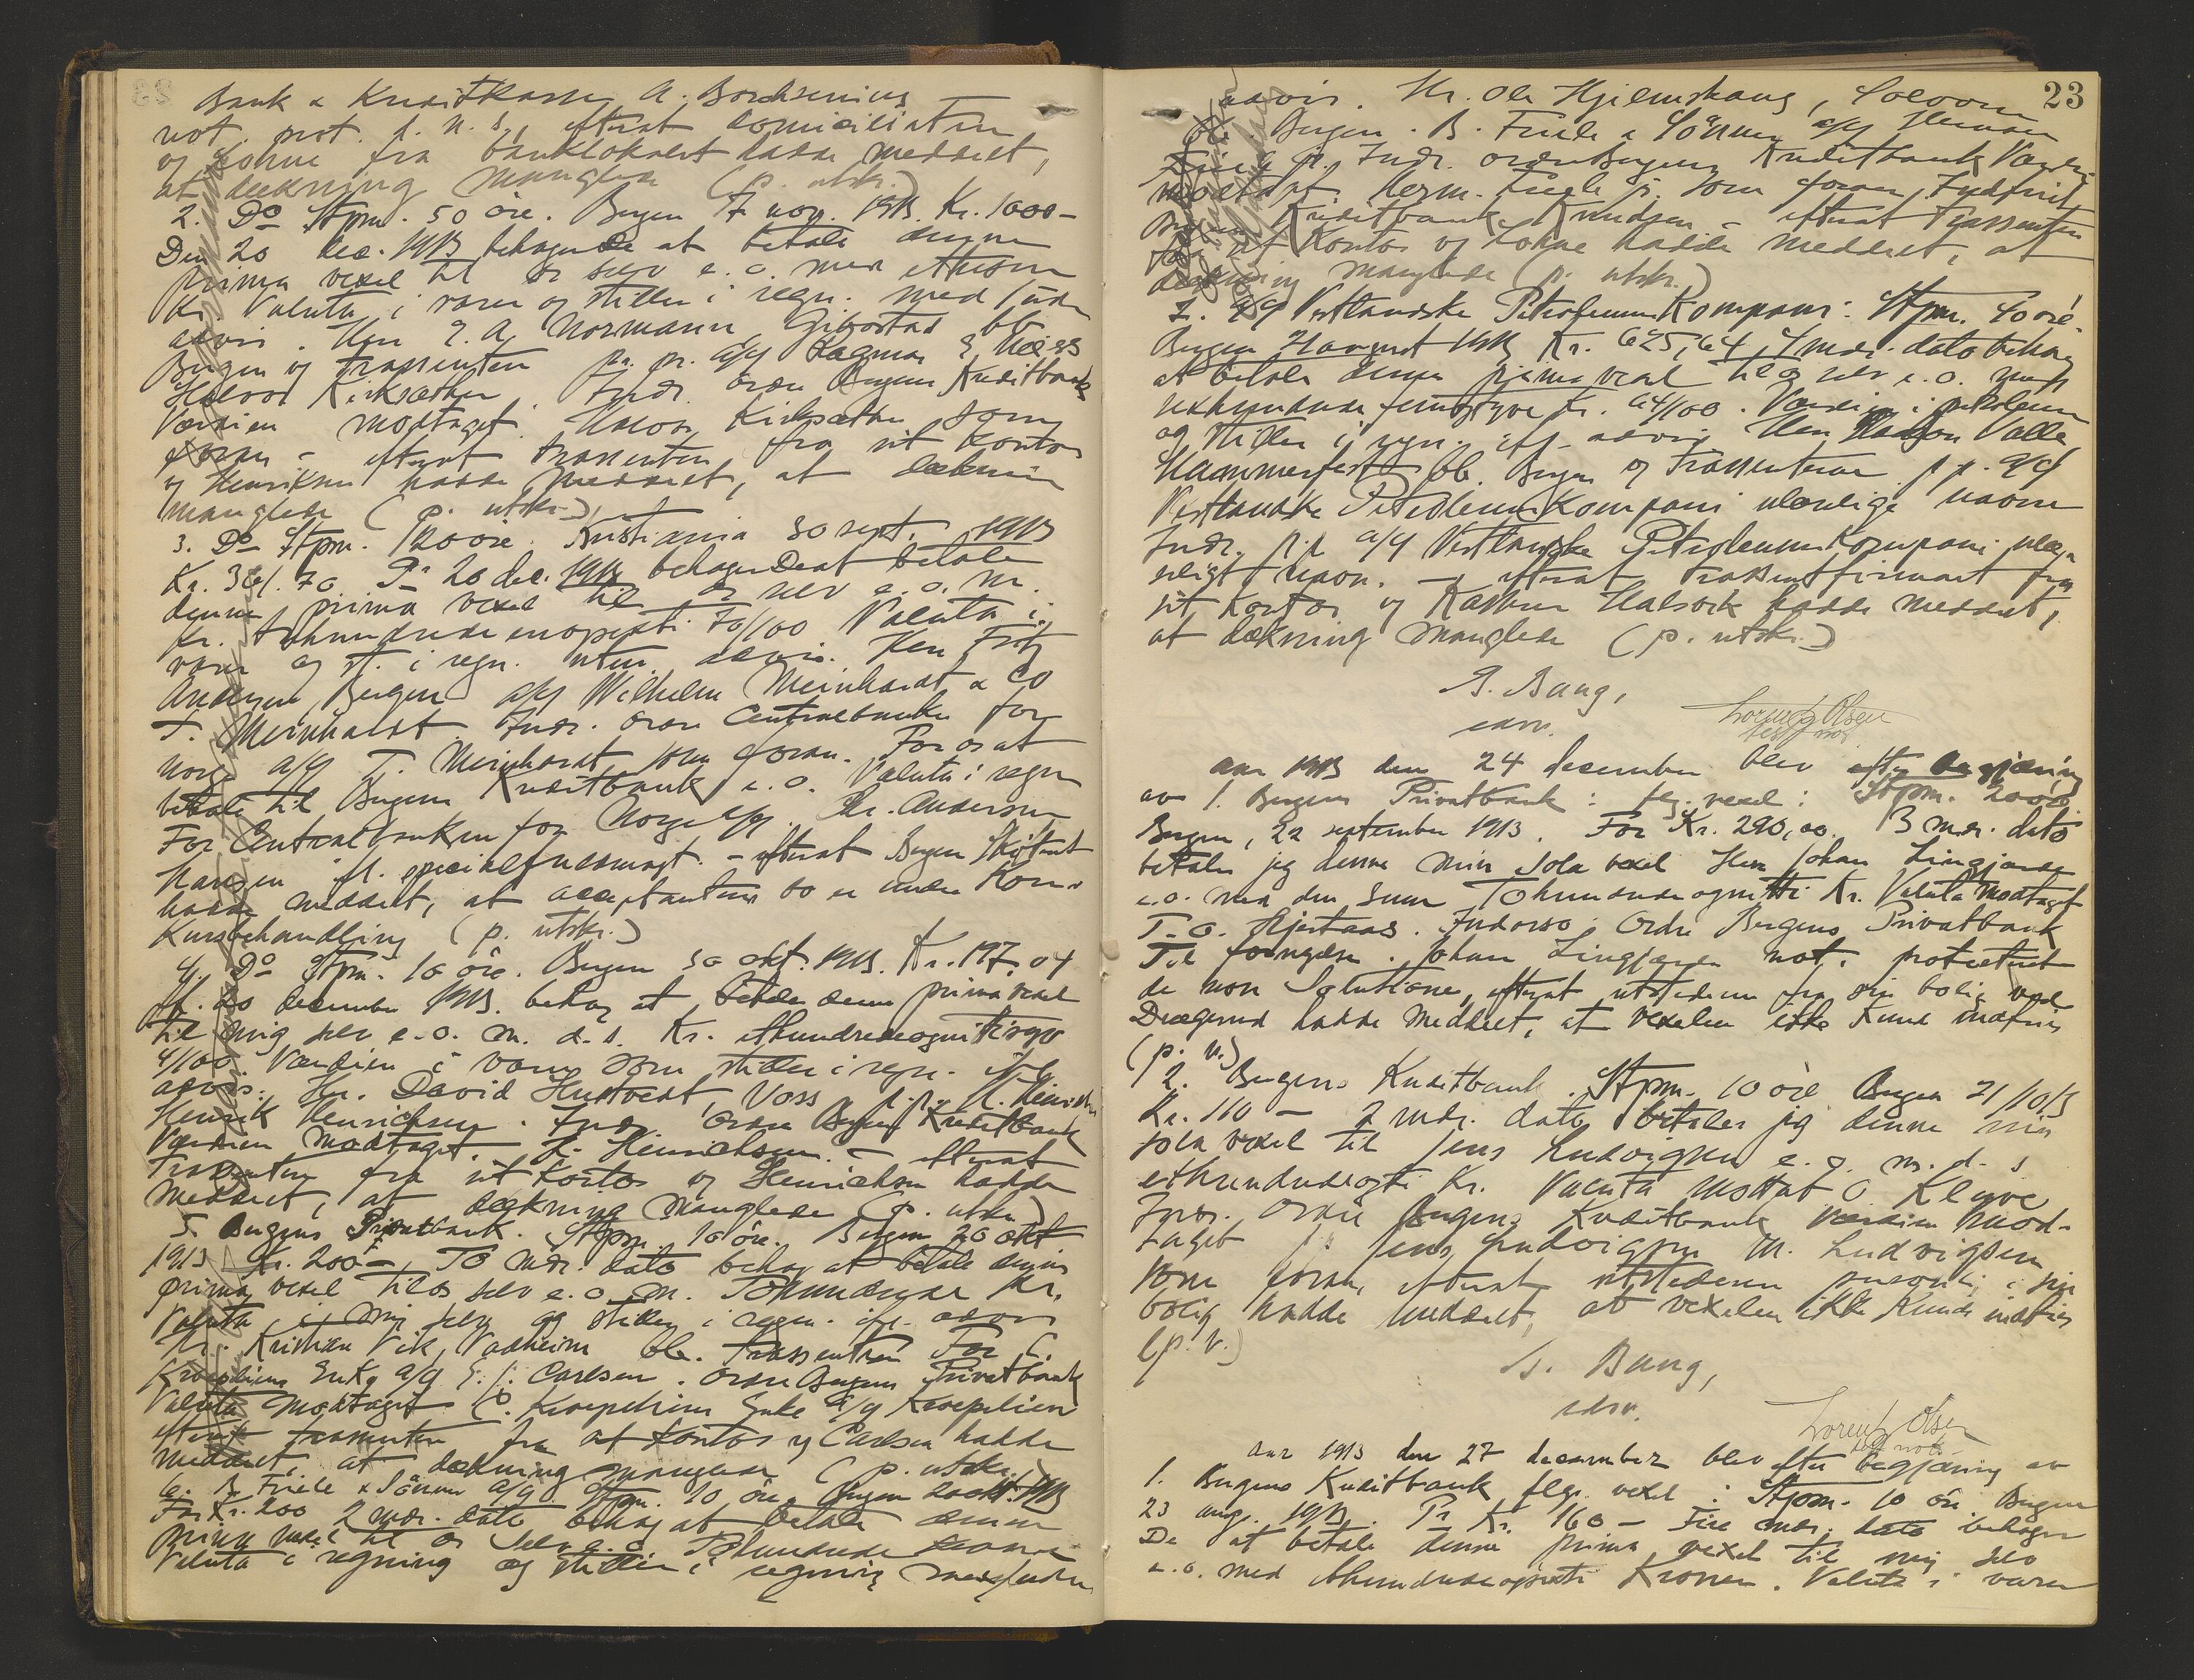 Bank & Kreditkasse A. Borchsenius
not. prot. d. n. s. efterat domiciliaten
og fra banklokalet hadde meddelt,
at dækning manglede (p. utskr.)
2. Do Stpm. 50 öre. Bergen 7 nov. 1913. Kr. 1000-
Den 20 dec. 1913 behagede at betale denne
prima vexel til os selv e. o. med ettusen
Kr. Valuta i varer og stilles i regn. med / uden
advis. Herr E. A. Normann, Gibostad bb.
Bergen og trassenten pr. pr. a/s Dagmar
Halvor Kirksæther. Indr. ordre Bergens Kreditbank
Værdien modtaget. Halvor Kirksæther som
foran - efterat trassenten fra sit kontor
og Henriksen hadde meddelt, at dækning
manglede (p. utskr.)
3. Do Stpm. 20 öre. Kristiania 30 sept. 1913
Kr. 361.70 Pr 20 dec. 1913 behager De at betale
denne prima vexel til os selv e. o. m.
Kr. trehundrede enogseksti 70/100 Valuta i
varer og st. i regn. uten advis. Herr Fritz
Andersen Bergen a/s Wilhelm Meinhardt & Co
T. Meinhardt. Indr. ordre Centralbanken for
Norge a/s T. Meinhardt som foran. For os at
betale til Bergens Kreditbank e. o. Valuta i regn
For Centralbanken for Norge Chr. Andersen
Hansen if. specialfuldmagt. - efterat Bergens Skifteret
hadde meddelt, at acceptantens bo er under Kon-
kursbehandling (p. utskr.)
4. Do Stpm. 10 öre. Bergen 30 okt. 1913. Kr. 197,04
Pr. 20 december 1913. behag at betale denne prima vexel
til mig selv e. o. m. d. s. Kr. ethundredeognitisyv
4/100. Værdien i varer som stilles i regn. ifl.
advis. Hr. David Hustvedt, Voss p. p. H. Henrichsen
Henrik Henrichsen. Indr. ordre Bergens Kreditbank
Værdien modtaget. H. Henrichsen. - efterat
Trassenten fra sit kontor og Henrichsen hadde
meddelt, at dækning manglede (p. utskr.)
5. Bergens Privatbank. Stpm. 10 öre. Bergen 20 okt
1913 Kr. 200 - To mdr. dato behag at betale denne
prima vexel til os selv e. o. m. Tohundrede Kr.
Valuta i mig selv og stilles i regn. ifl. advis
Hr. Kristian Vik, Vadheim bb. Trassenten For C.
Kroepeliens Enke a/s E. J. Carlsen. Ordre Bergens Privatbank
Valuta modtaget C. Kroepeliens Enke a/s Kroepelien
efterat trassenten fra sit kontor og Carlsen hadde
meddelt at dækning manglede (p. utskr.)
6. B. Friele & Sönner a/s. Stpm. 10 öre. Bergen 20 okt. 1913
For Kr. 200 2 mdr. dato behag at betale denne
prima vexel til os selv e. o. Tohundrede kroner
Valuta i regning og stilles i regning med/uden
23
advis. Hr. Ole Hjelmskaug,
bb. Bergen. B. Friele & Sönner a/s Herman
Friele jr. Indr. ordre Bergens Kreditbank Værdi
modtat. Herm. Friele jr. som foran, Indfriet
Bergens Kreditbank Knudsen - efterat Trassenten
fra sit kontor og hadde meddelt, at
dækning manglede (p. utskr.)
7. a/s Vestlandske Petroleumskompani: Stpm. 40 öre.
Bergen 21 august 1913 Kr. 625,64. 4 mdr. dato behag
at betale denne prima vexel til os selv e. o. med
sekshundrede femogtyve Kr. 64/100. Værdien i petroleum
og stilles i regn. ifl. advis Herr Haagon Valle
Hammerfest bb. Bergen og Trassenterne p. p. a/s
Vestlandske Petroleumskompani ulæselige navne
Indr. p. p. a/s Vestlandske Petroleumskompani ulæse
seligt navn. - efterat trassentfirmaet fra
sit kontor og Kasserer Halsvik hadde meddelt,
at dækning manglede (p. utskr.)
B. Bang,
edsv.
Lorentz Olsen
Aar 1913 den 24 december blev efter begjæring
av 1. Bergens Privatbank: flg. vexel: Stpm. 20 öre
Bergen, 22 september 1913. For Kr. 290,00. 3 mdr. dato
betaler jeg denne min Sola vexel Herr Johan Lingjærde
e. o. med den Sum Tohundredeognitti Kr. Valuta modtaget
T. O. Hjertaas. Indorso: Ordre Bergens Privatbank
Til forögelse. Johan Lingjærde not. protesteret
de non Solutione, efterat utstederen fra sin bolig ved
Drægerud hadde meddelt, at vexelen ikke kunde indfries
(p. v.)
2. Bergens Kreditbank. Stpm. 10 öre Bergen 21/10/13
Kr. 110 - 2 mdr. dato betaler jeg denne min
sola vexel til Jens Ludvigsen e. o. m. d. s
ethundredeogti Kr. Valuta mottat O. Kleppe
Indr. Ordre Bergens Kreditbank Værdien mod-
taget Jens Ludvigsen M. Ludvigsen
som foran, efterat utstederen personlig i sin
bolig hadde meddelt, at vexelen ikke kunde indfries
(p. v.)
B. Bang,
edsv.
Lorentz Olsen
Aar 1913 den 27 december blev efter begjæring av
1. Bergens Kreditbank flgr. vexel: Stpm. 10 öre Bergen
23 aug. 1913. Pr Kr. 160 - Fire mdr. dato behager
De at betale denne prima vexel til mig selv
e. o. med ethundredeogseksti Kroner. Valuta i varer